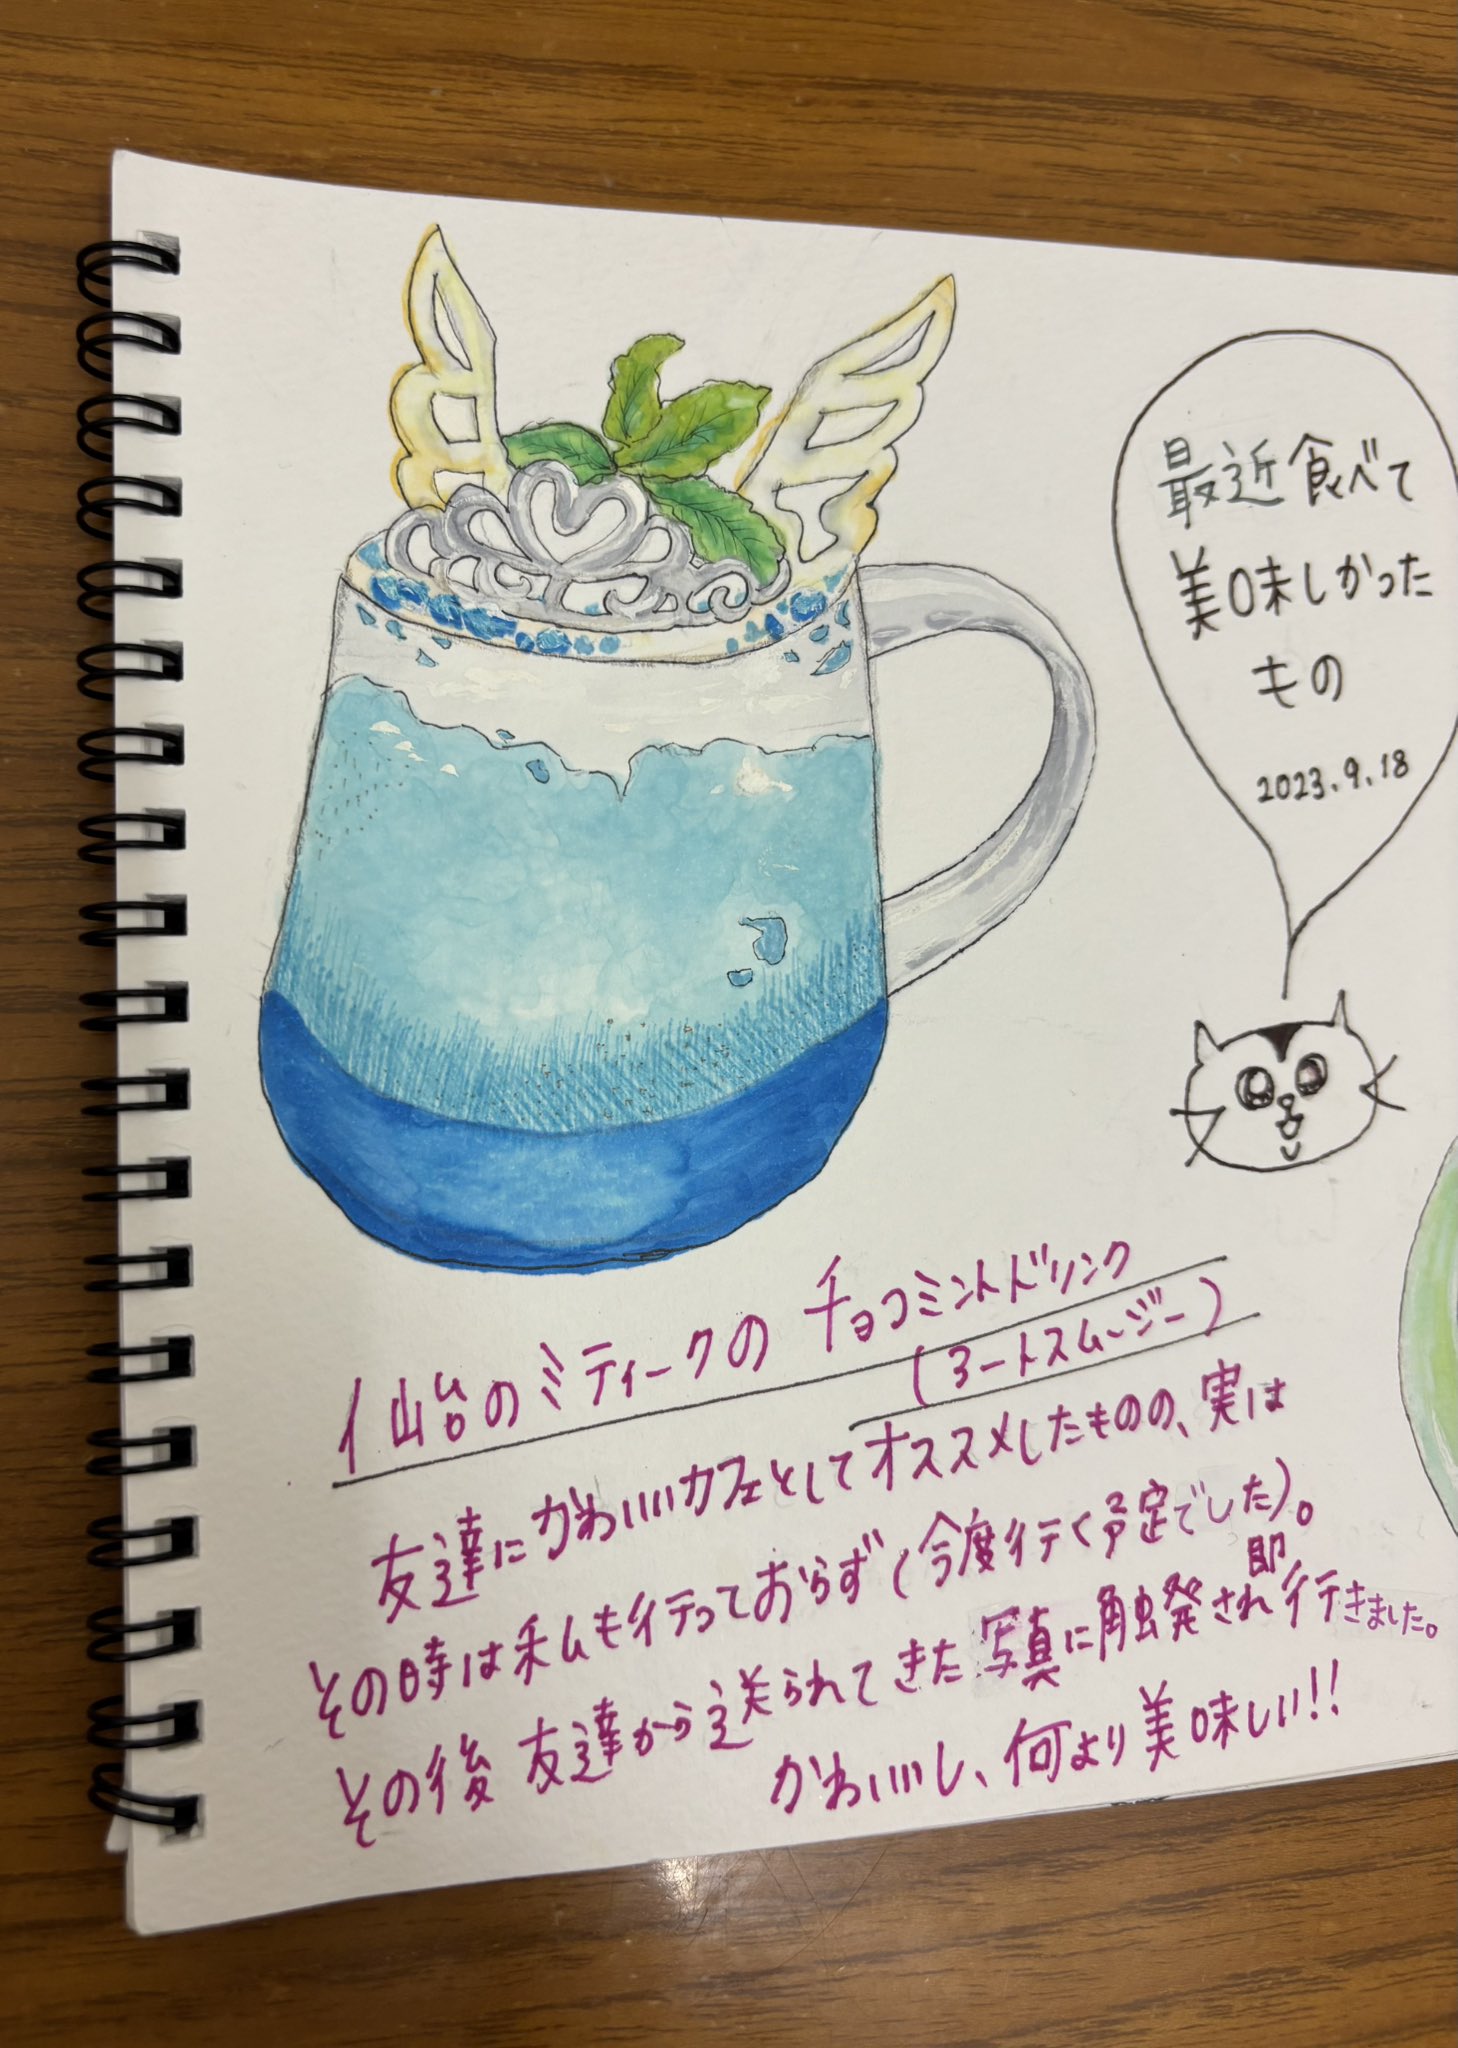 最近食べて
美味しかった
もの
2023.9.18
仙台のミティークの チョコミントドリンク
(ヨートスムージー)
友達にかわいいカフェとしてオススメしたものの、実は
その時は私も行っておらず(今度行く予定でした)。
その後 友達から送られてきた写真に触発され即行きました。
かわいいし、何より美味しい!!